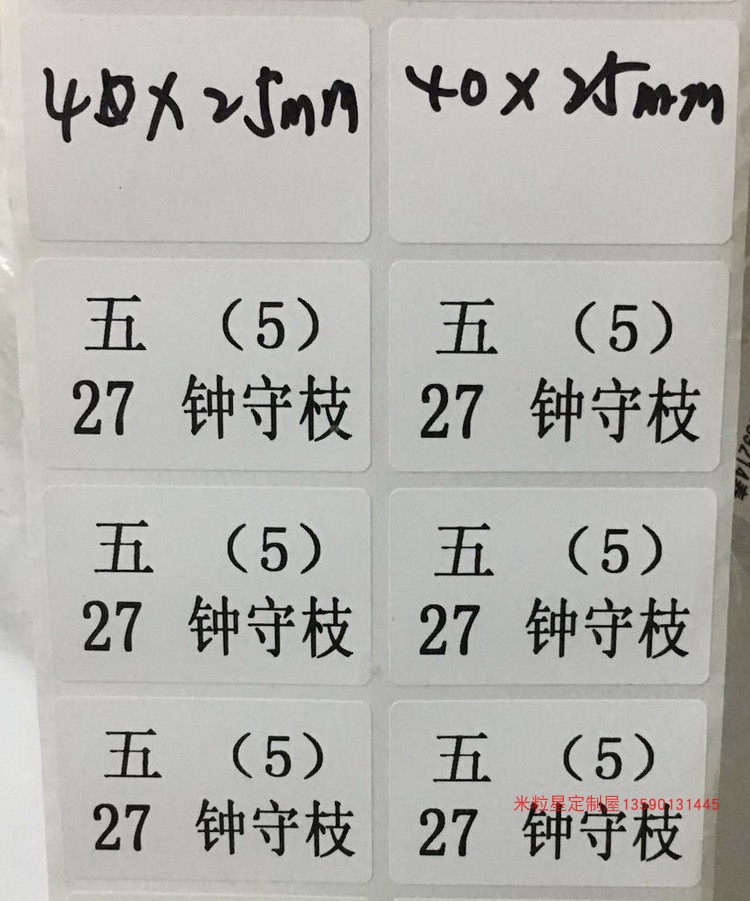 40×25mm 40×25mm
五 （5） 五 （5）
27 钟守枝 27 钟守枝
五 （5） 五 （5）
27 钟守枝 27 钟守枝
五 （5） 五 （5）
米粒星定制屋13590131445
27 钟守枝 27 钟守枝